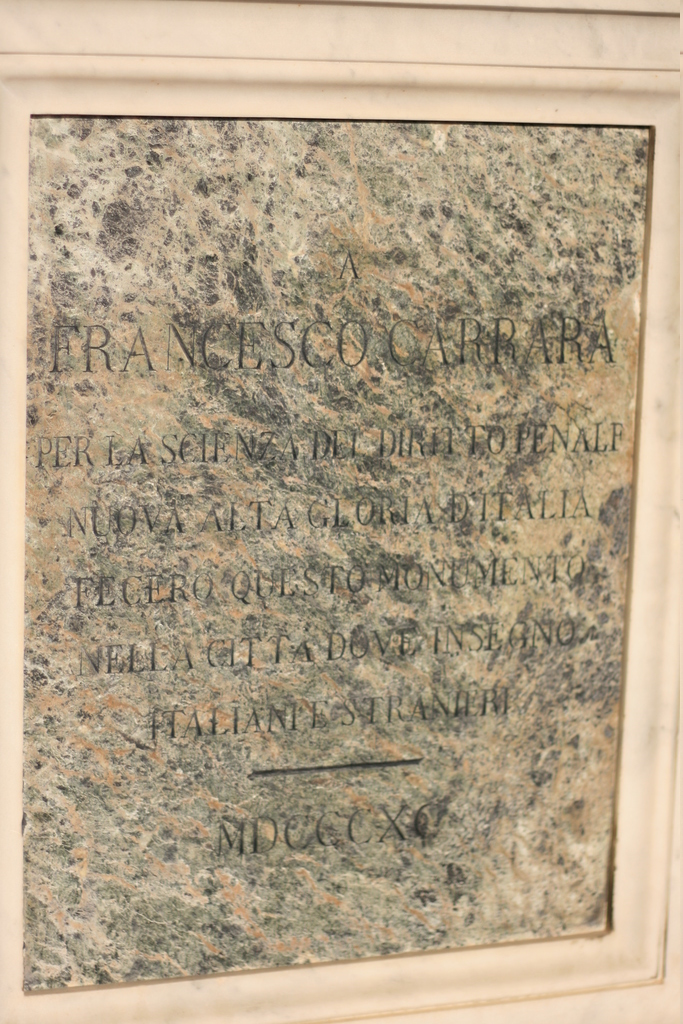 A
FRANCESCO CARRARA
PER LA SCIENZA DEL DIRITTO PENALE
NUOVA ALTA GLORIA D'ITALIA
FECERO QUESTO MONUMENTO
NELLA CITTÀ DOVE INSEGNO
ITALIANI E STRANIERI
MDCCCXC